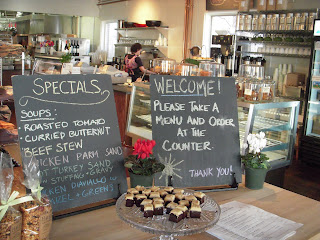 SPECIALS
SOUPS:
ROASTED TOMATO
CURRIED BUTTERNUT
BEEF STEW
CHICKEN PARM SAND
TURKEY SAND
STUFFING + GRAVY
WELCOME!
PLEASE TAKE A
MENU AND ORDER
AT THE
COUNTER.
THANK YOU!